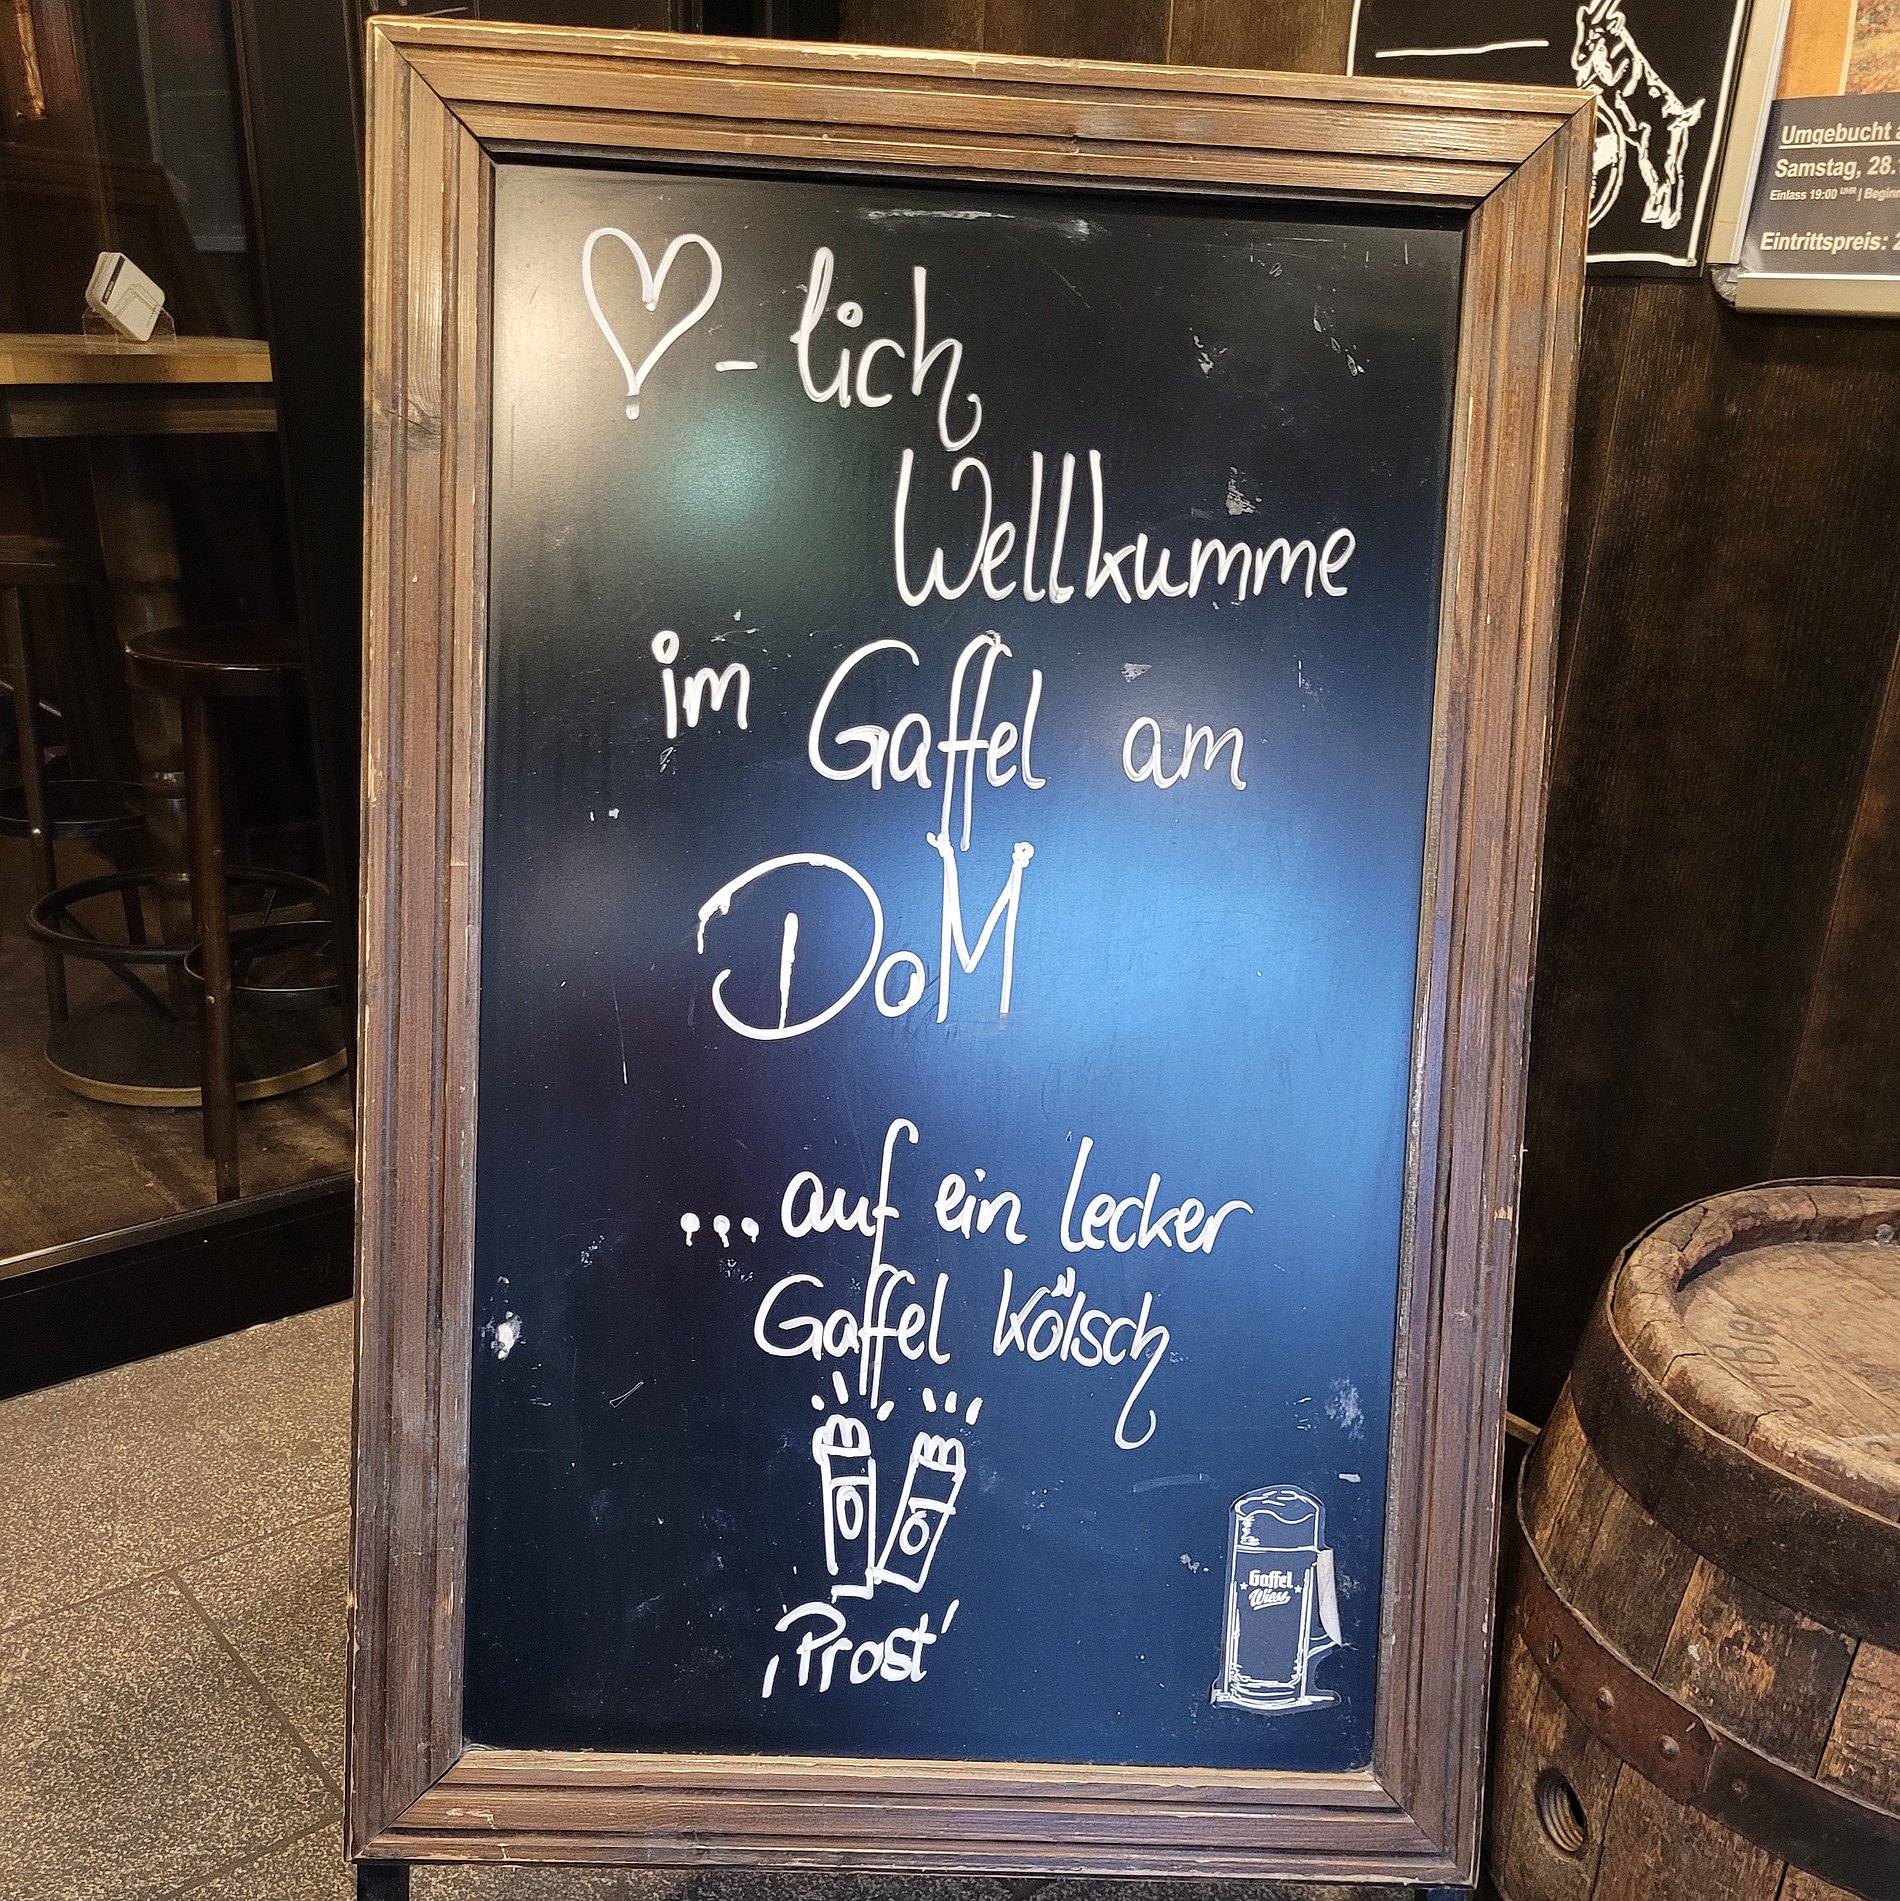 ♡-lich
Wellkumme
im Gaffel am
DoM
...auf ein lecker
Gaffel Kölsch
'Prost'
Gaffel
Wiess
Umgebucht
Samstag, 28.
Einlass 19:00 UHR |
Eintrittspreis: